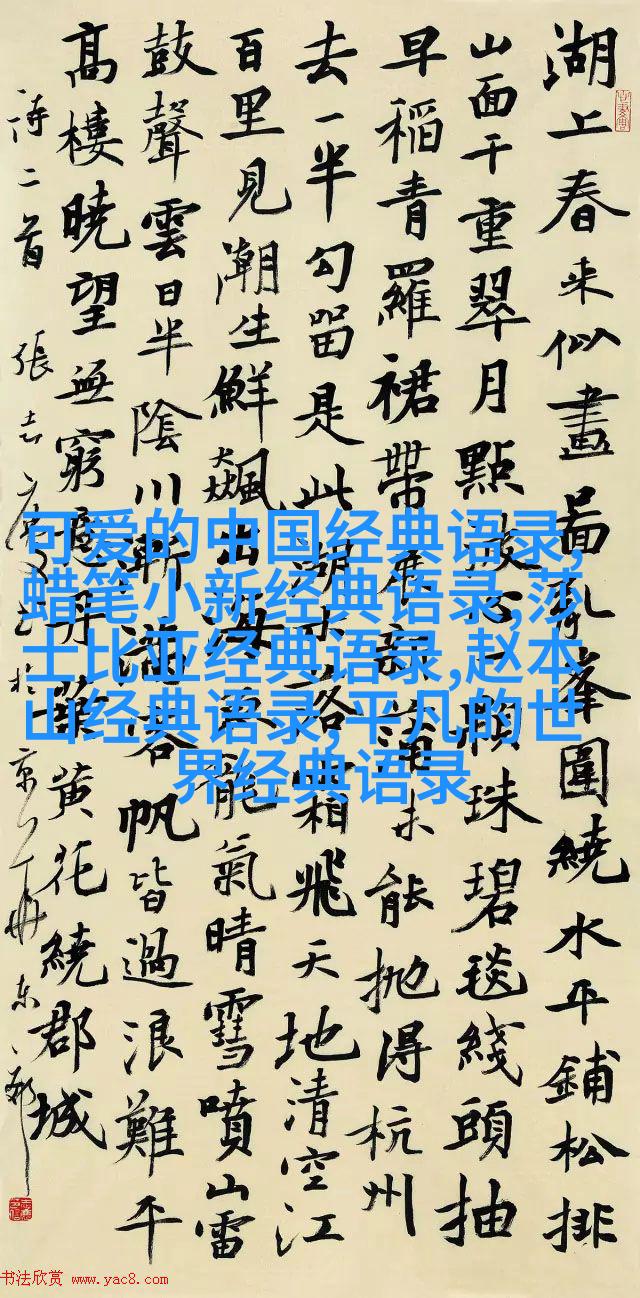 湖上春来似畫啚乱峯圍繞水平鋪松排
山面千重翠月點波心一顆珠碧毯綫頭抽
早稻青羅裙帶展新蒲未能抛得杭州
去一半勾留是此湖水路霜飛天地清空江
百里見潮生鮮飚出海魚龍氣晴雪噴山雷
鼓聲雲日半陰川漸滿客帆皆過浪難平
高樓曉望無窮意丹葉黄花繞郡城
詩二首 張志慶书於京
可爱的中国经典语录,
蜡笔小新经典语录,莎
士比亚经典语录,赵本
山经典语录,平凡的世
界经典语录
书法欣赏 www.yac8.com